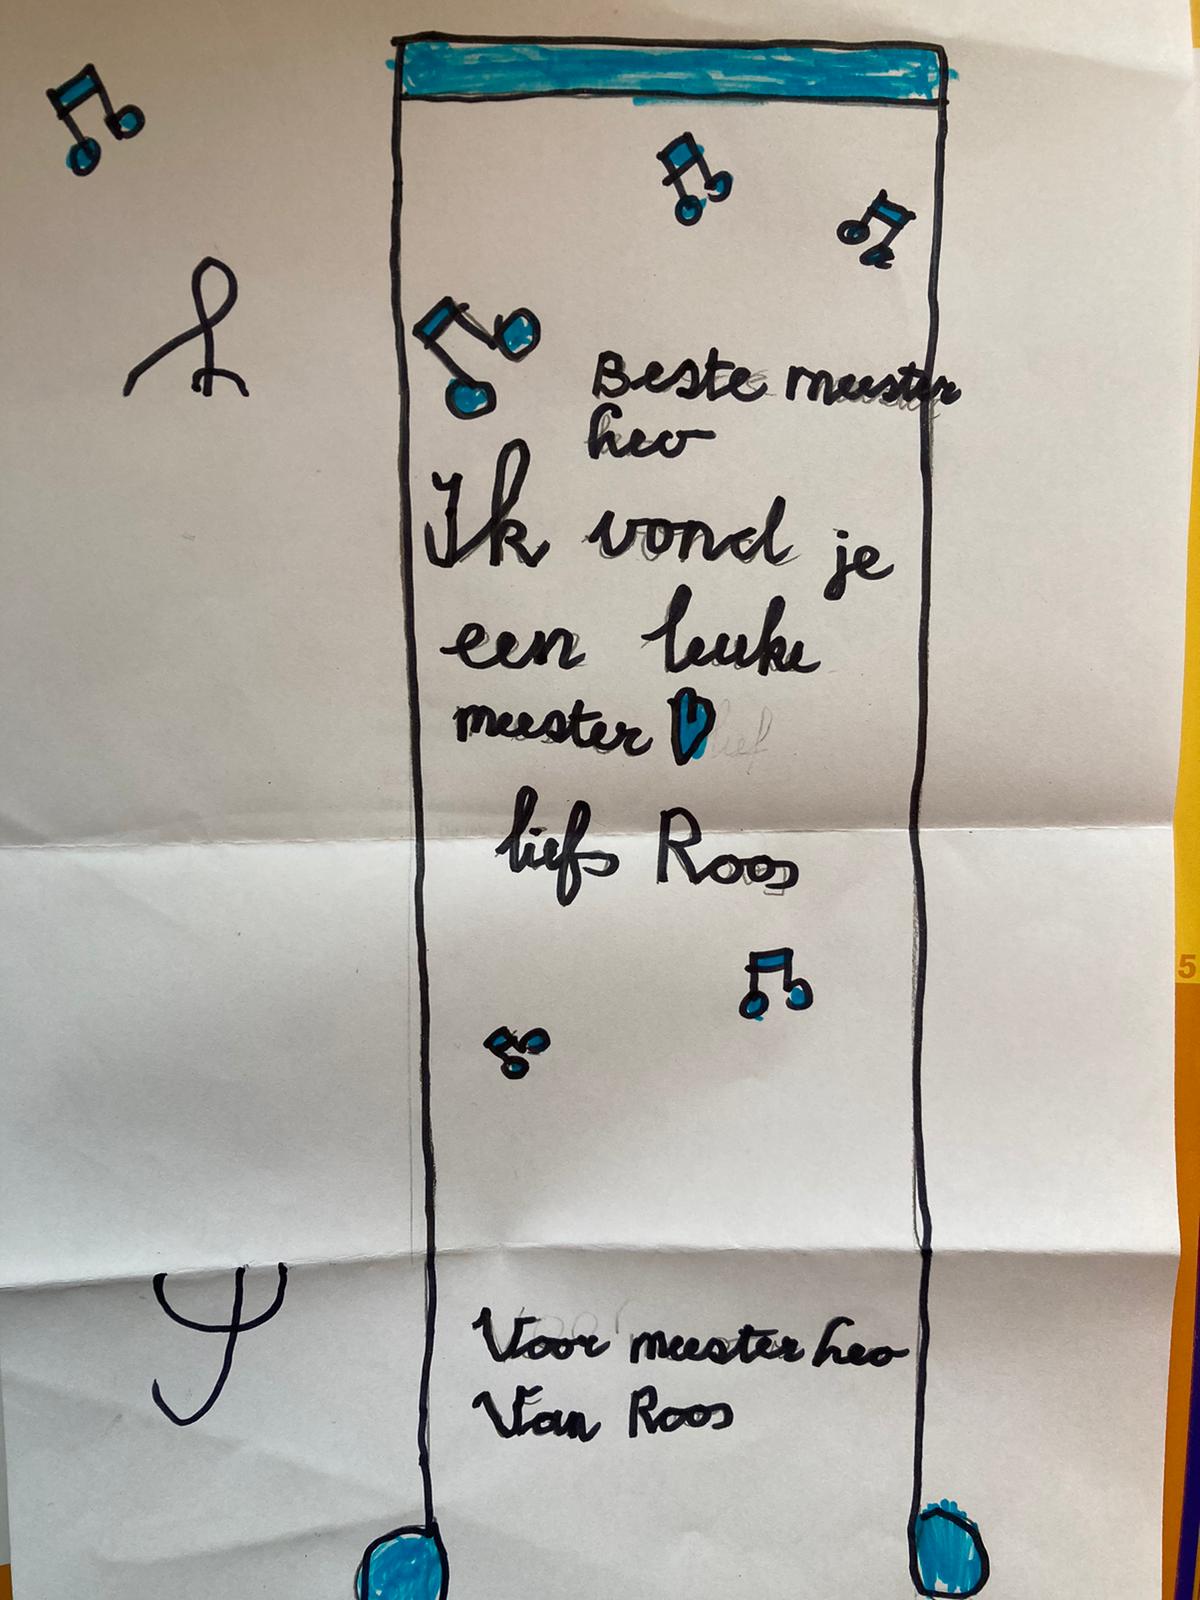 Beste meester
heo
Ik vond je
een leuke
meester
lief
liefs Roos
5
Voor meester heo
Van Roos